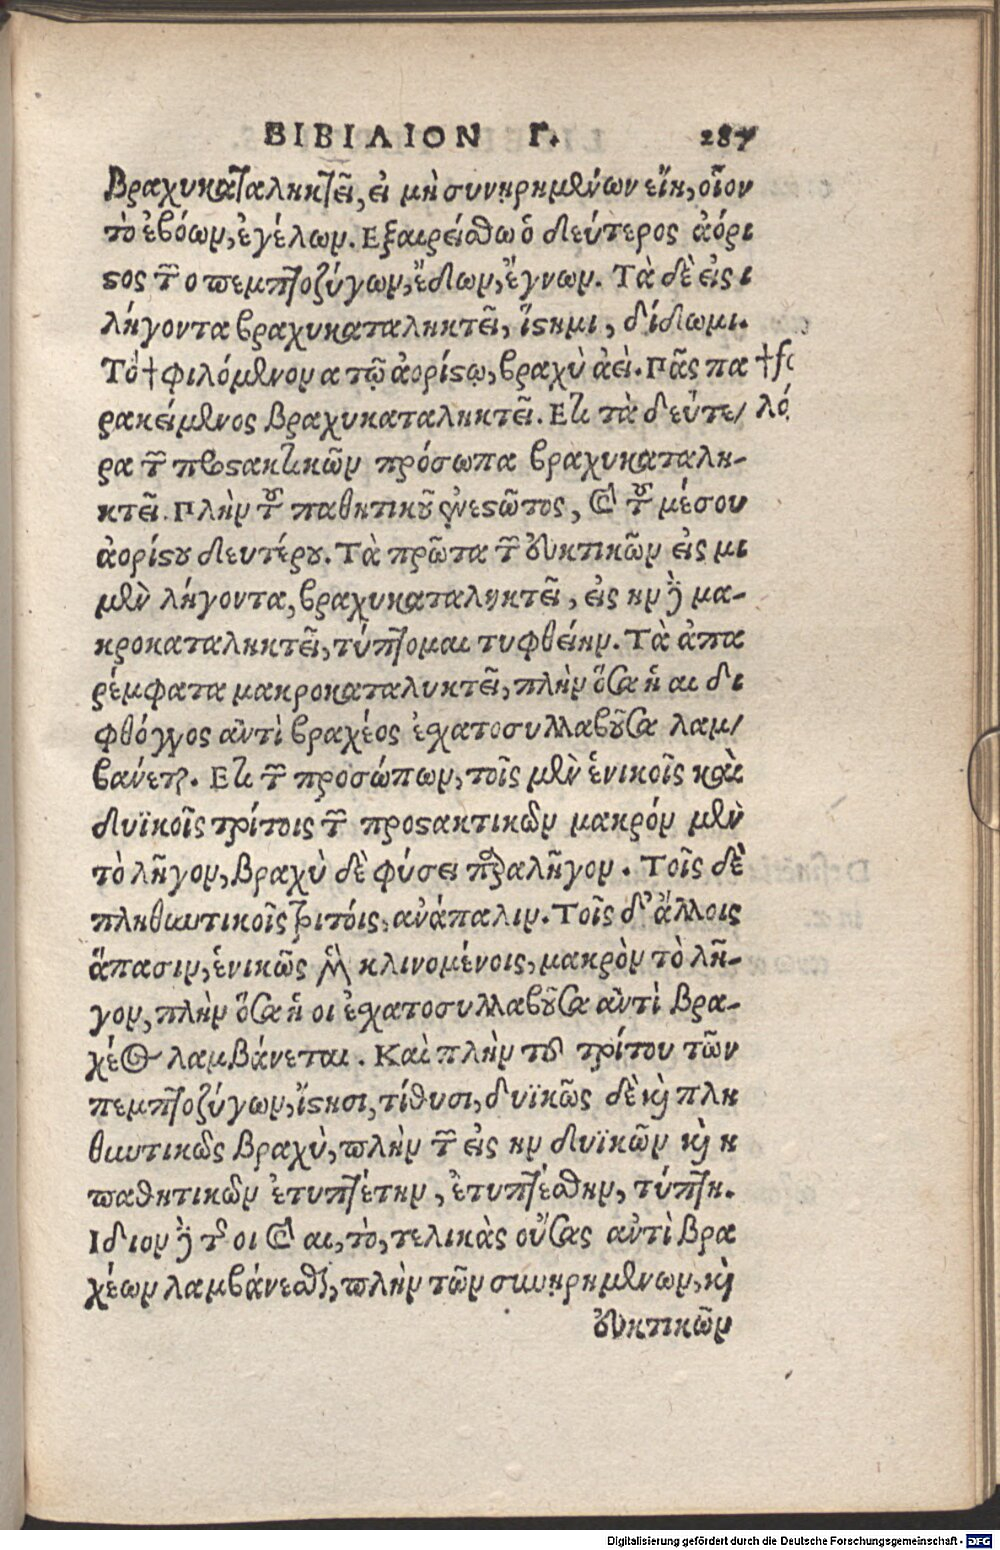 ΒΙΒΙΛΙΟΝ Γ. 287
Βραχυκαταληκτεῖ, εἰ μὴ συνῃρημένων εἴη, οἷον
τὸ ἐβόων, ἐγέλων. Εξαιρείσθω ὁ δεύτερος ἀόρι
ϛος τῶν ο πεμπτοζύγων, ἔδων, ἔγνων. Τὰ δὲ εἰς ι
λήγοντα βραχυκαταληκτεῖ, ἵϛημι, δίδωμι.
Τὸ † φιλόμενον α τῷ ἀορίϛῳ, βραχὺ ἀεὶ. Πᾶς πα
ρακείμενος βραχυκαταληκτεῖ. Ετι τὰ δεύτε/
ρα τῶν προϛακτικῶν πρόσωπα βραχυκαταλη-
κτεῖ. Πλὴν τοῦ παθητικοῦ ἐνεϛῶτος, καὶ τοῦ μέσου
ἀορίϛου δευτέρου. Τὰ πρῶτα τῶν εὐκτικῶν εἰς μι
μὲν λήγοντα, βραχυκαταληκτεῖ, εἰς ην δὲ μα-
κροκαταληκτεῖ, τύπτοιμαι τυφθείην. Τὰ ἀπα
ρέμφατα μακροκαταλυκτεῖ, πλὴν ὅσα ἡ αι δι
φθόγγος αντὶ βραχέος ἐχατοσυλλαβοῦσα λαμ/
βάνεται. Ετι τῶν προσώπων, τοῖς μὲν ἑνικοῖς καὶ
δυϊκοῖς τρίτοις τῶν προϛακτικῶν μακρόν μὲν
τὸ λῆγον, βραχὺ δὲ φύσει παραλῆγον. Τοῖς δὲ
πληθυντικοῖς τριτόις, ανάπαλιν. Τοῖς δ' ἄλλοις
ἅπασιν, ἑνικῶς κλινομένοις, μακρὸν τὸ λῆ-
γον, πλὴν ὅσα ἡ οι ἐχατοσυλλαβοῦσα αντὶ βρα-
χέος λαμβάνεται. Καὶ πλὴν τοῦ τρίτου τῶν
πεμπτοζύγων, ἵϛησι, τίθυσι, δυϊκῶς δὲ καὶ πλη
θυντικῶς βραχὺ, πλὴν τῶν εἰς ην δυϊκῶν καὶ η
παθητικῶν ἐτυπτέτην, ἐτυπτέσθην, τύπτη.
Ιδιον δὲ τῶν οι καὶ αι, τὸ, τελικὰς οὔσας αντὶ βρα
χέων λαμβάνεσθαι, πλὴν τῶν συνῃρημένων, καὶ
εὐκτικῶν
Digitalisierung gefördert durch die Deutsche Forschungsgemeinschaft - DFG